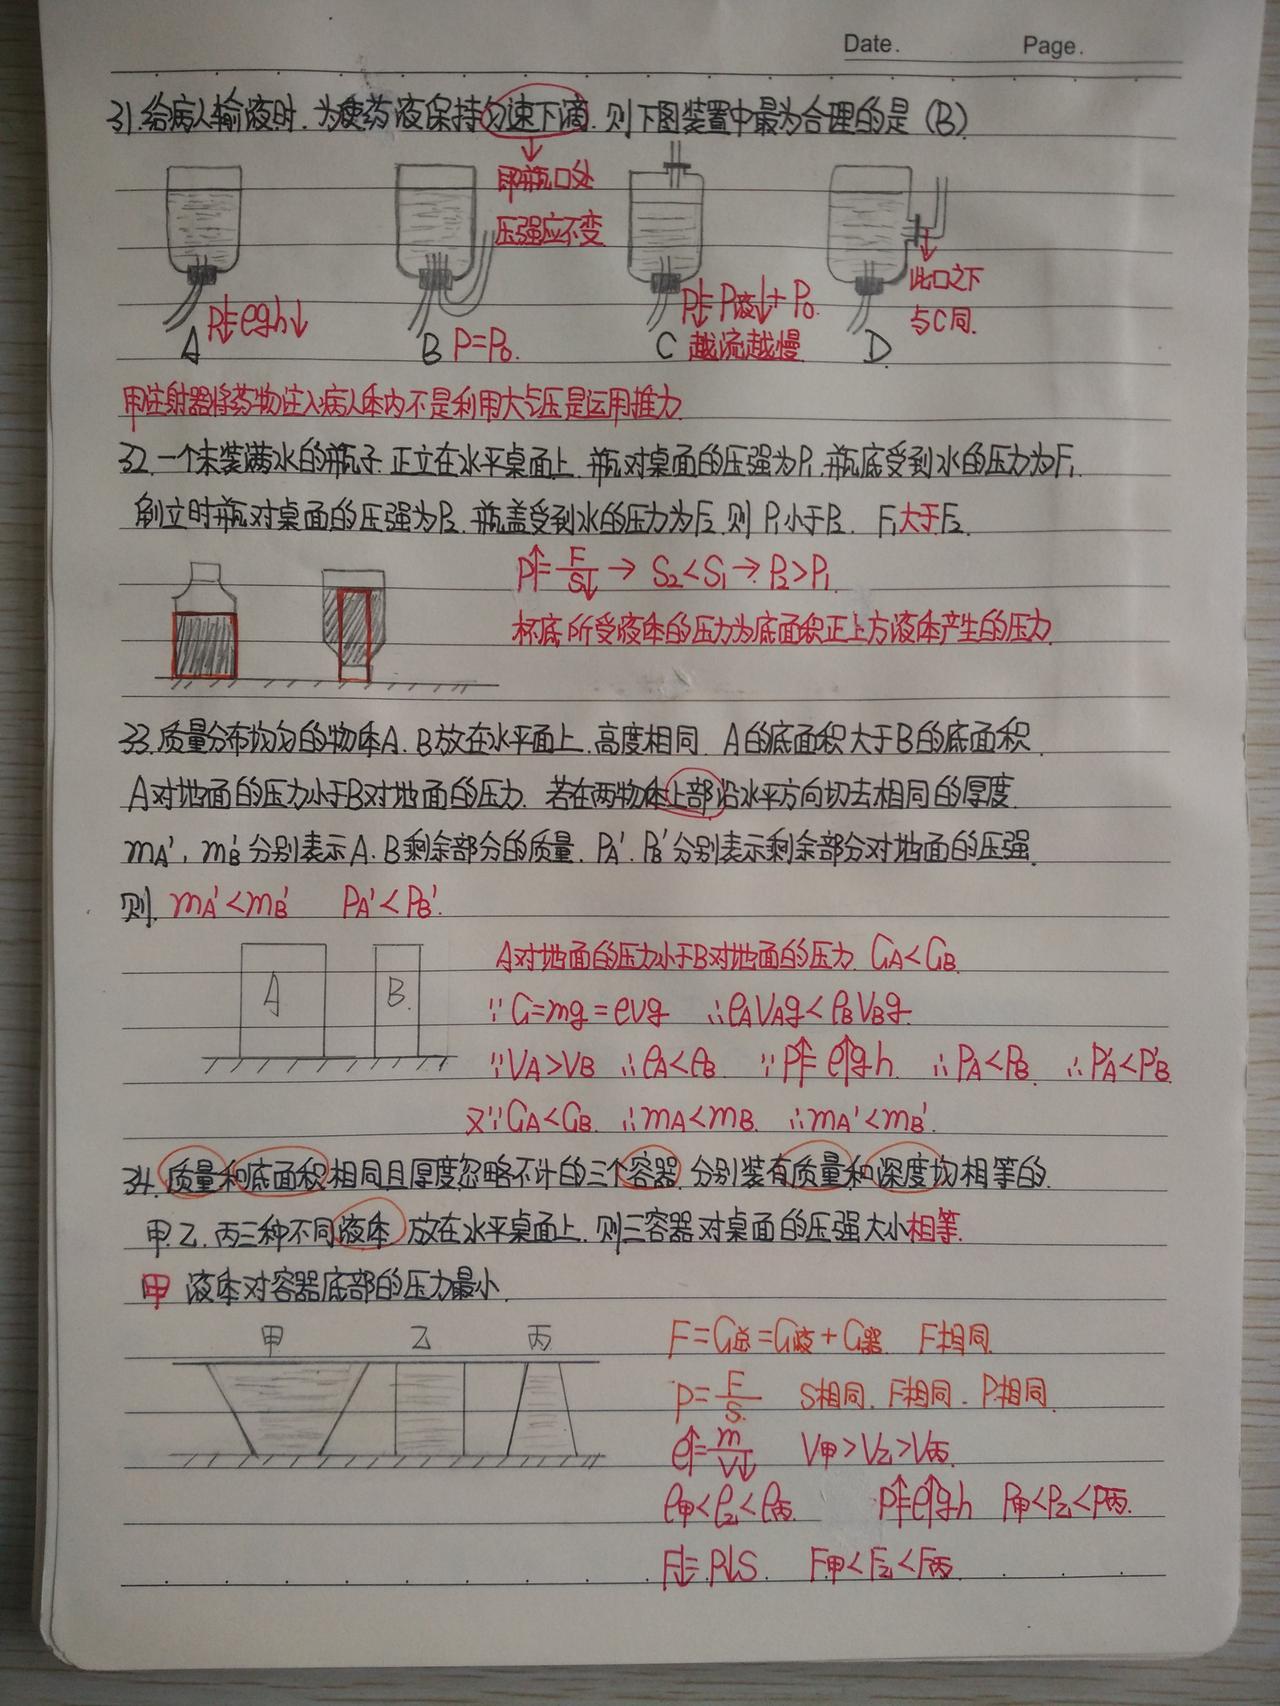 Date. Page.
31.给病人输液时.为使药液保持匀速下滴.则下图装置中最为合理的是(B)
即瓶口处
压强应不变
此口之下
与C同.
P↓=ρgh↓
P↓=P液↓+P₀
A
B P=P₀.
C 越流越慢
D
甲注射器将药物注入病人体内不是利用大气压是运用推力.
32.一个未装满水的瓶子.正立在水平桌面上.瓶对桌面的压强为P₁.瓶底受到水的压力为F₁.
倒立时瓶对桌面的压强为P₂.瓶盖受到水的压力为F₂.则 P₁小于P₂. F₁大于F₂.
P↑=F/S↓→S₂<S₁→P₂>P₁.
杯底所受液体的压力为底面积正上方液体产生的压力.
33.质量分布均匀的物体A.B放在水平面上.高度相同.A的底面积大于B的底面积.
A对地面的压力小于B对地面的压力.若在两物体上部沿水平方向切去相同的厚度.
mA′,mB′分别表示A.B剩余部分的质量.PA′.PB′分别表示剩余部分对地面的压强.
则.mA′<mB′ PA′<PB′.
A B.
A对地面的压力小于B对地面的压力.GA<GB.
∵G=mg=ρvg ∴ρAVAg<ρBVBg.
∵VA>VB ∴ρA<ρB ∵P↑=ρ↑gh. ∴PA<PB. ∴P′A<P′B.
又∵GA<GB. ∴mA<mB. ∴mA′<mB′.
34.质量和底面积相同且厚度忽略不计的三个容器.分别装有质量和深度均相等的.
甲.乙.丙三种不同液体.放在水平桌面上.则三容器对桌面的压强大小相等.
甲 液体对容器底部的压力最小.
甲 乙 丙
F=G总=G液+G器 F相同.
P=F/S. S相同.F相同.P相同.
ρ↑=m/V↓ V甲>V乙>V丙.
ρ甲<ρ乙<ρ丙. P↑=ρ↑gh P甲<P乙<P丙.
F↓=P↓S. F甲<F乙<F丙.